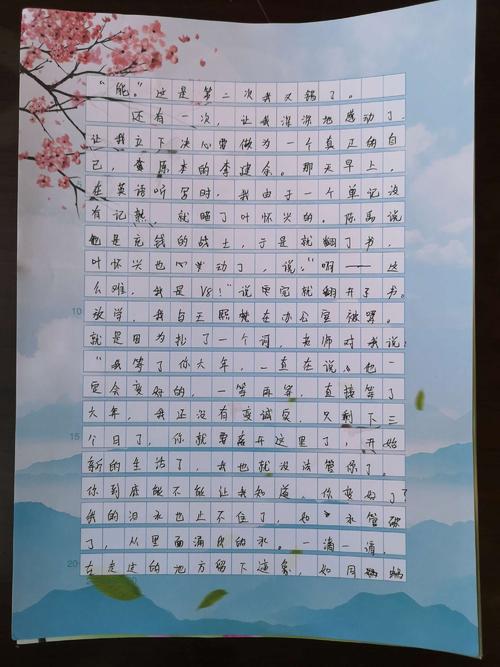 “能。”这是第二次我又错了。
还有一次，让我深深地感动了，
让我立下决心要做为一个真正的自
己，最原本的李建余。那天早上，
在英语听写时，我由于一个单记没
有记熟，就瞄了叶怀兴的。陈禹说
他是充钱的战士，于是就翻了书，
叶怀兴也心动了，说：“啊——这
么难，我是V8！”说完就翻开了书。
放学，我与王熙乾在办公室被骂。
就是因为扎了一个词，老师对我说：
“我等了你六年，一直在说，他一
定会变好的，一等再等，直接等了
六年，我还没有变诚实，只剩下三
个日了，你就要离开这里了，开始
新的生活了，我也就没法管你了。
你到底能不能让我知道，你变好了？
我的泪水也止不住了，如 水管破
了，从里面漏出的水。一滴一滴，
在走过的地方留下迹象，如同蜗
10
15
20